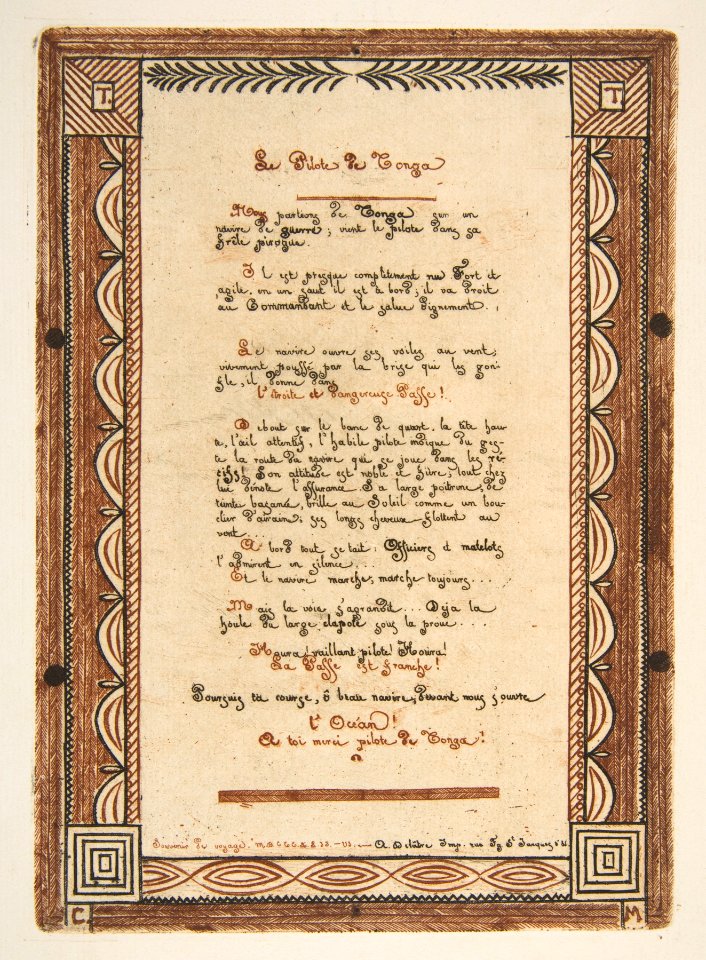 T. T
Le Pilote de Tonga
Nous partions de Tonga sur un
navire de guerre ; vient le pilote dans sa
frêle pirogue.
Il est presque complètement nu Fort et
agile, en un saut il est à bord ; il va droit
au Commandant et le salue dignement.
Le navire ouvre ses voiles au vent;
vivement poussé par la brise que les gon-
fle, il donne dans
l'étroite et dangereuse Passe !
Debout sur le banc de quart, la tête hau-
te, l'œil attentif, l'habile pilote indique du ges-
te la route du navire qui se joue dans les ré-
cifs ! Son attitude est noble et fière, tout chez
lui dénote l'assurance. Sa large poitrine, de
teinte basanée, brille au Soleil comme un bou-
clier d'airain ; ses longs cheveux flottent au
vent ...
A bord tout se tait ; Officiers et matelots
l'admirent en silence ....
Et le navire marche, marche toujours ...
Mais la voie s'agrandit ... Déja la
houle du large clapote sous la proue ....
Houra ! vaillant pilote ! Houra !
La Passe est franchie !
Poursuis ta course, ô beau navire, Devant nous s'ouvre
l'Océan !
A toi merci pilote de Tonga !
Souvenir de voyage. A. Delâtre Imp. rue Fg St Jacques
C M